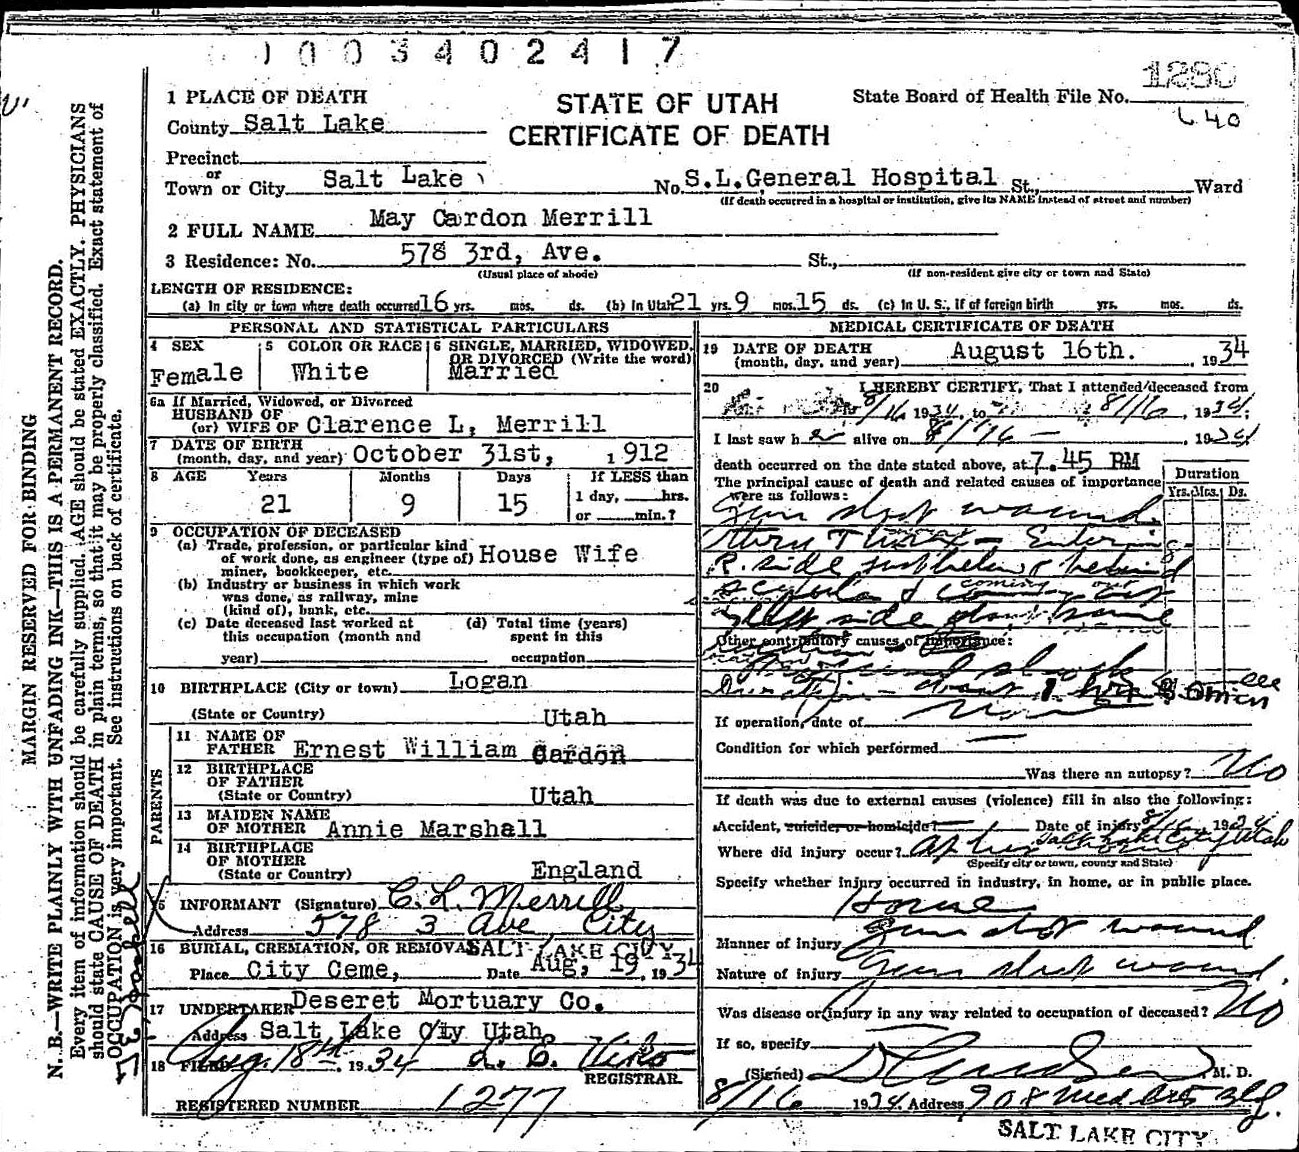 0003402417
1280
640
1 PLACE OF DEATH
STATE OF UTAH
CERTIFICATE OF DEATH
State Board of Health File No.
County Salt Lake
Precinct
or
Town or City Salt Lake No. S.L.General Hospital St., Ward
(If death occurred in a hospital or institution, give its NAME instead of street and number)
2 FULL NAME May Cardon Merrill
3 Residence: No. 578 3rd, Ave. St.,
(Usual place of abode) (If non-resident give city or town and State)
LENGTH OF RESIDENCE:
(a) In city or town where death occurred 16 yrs. mos. ds. (b) In Utah 21 yrs. 9 mos. 15 ds. (c) In U. S., if of foreign birth yrs. mos. ds.
PERSONAL AND STATISTICAL PARTICULARS
4 SEX
Female
5 COLOR OR RACE
White
6 SINGLE, MARRIED, WIDOWED,
OR DIVORCED (Write the word)
Married
6a If Married, Widowed, or Divorced
HUSBAND OF
(or) WIFE OF Clarence L, Merrill
7 DATE OF BIRTH
(month, day, and year) October 31st, 1912
8 AGE Years Months Days If LESS than
21 9 15 1 day, hrs.
or min.?
9 OCCUPATION OF DECEASED
(a) Trade, profession, or particular kind
of work done, as engineer (type of) House Wife
miner, bookkeeper, etc.
(b) Industry or business in which work
was done, as railway, mine
(kind of), bank, etc.
(c) Date deceased last worked at (d) Total time (years)
this occupation (month and spent in this
year) occupation
10 BIRTHPLACE (City or town) Logan
(State or Country) Utah
PARENTS
11 NAME OF
FATHER Ernest William Cardon
12 BIRTHPLACE
OF FATHER
(State or Country) Utah
13 MAIDEN NAME
OF MOTHER Annie Marshall
14 BIRTHPLACE
OF MOTHER
(State or Country) England
15 INFORMANT (Signature) C. L. Merrill
Address 578 3 Ave City
16 BURIAL, CREMATION, OR REMOVAL SALT LAKE CITY
Place City Ceme, Date Aug, 19, 1934
17 UNDERTAKER Deseret Mortuary Co.
Address Salt Lake City Utah
18 FILED Aug. 18th. 1934
REGISTRAR
REGISTERED NUMBER 1277
MEDICAL CERTIFICATE OF DEATH
19 DATE OF DEATH
(month, day, and year) August 16th. , 1934
20 I HEREBY CERTIFY, That I attended deceased from
8/16 1934, to 8/16, 1934;
I last saw her alive on 8/16 - , 1934
death occurred on the date stated above, at 7.45 PM
The principal cause of death and related causes of importance
were as follows:
Duration
Yrs. Mos. Ds.
Gun shot wound
thru Thorax - Entering
R. side just below & behind
scapula & coming out
left side
Other contributory causes of importance:
shock
Duration - about 1 hr
If operation, date of
Condition for which performed
Was there an autopsy? No
If death was due to external causes (violence) fill in also the following:
Accident, suicide or homicide? Date of injury 8/16 1934
Where did injury occur? At her home Salt Lake City Utah
(Specify city or town, county and State)
Specify whether injury occurred in industry, in home, or in public place.
Home
Manner of injury Gun shot wound
Nature of injury Gun shot wound
Was disease or injury in any way related to occupation of deceased? No
If so, specify
(Signed) M. D.
8/16 1934 Address 908 Med Arts Blg.
SALT LAKE CITY
MARGIN RESERVED FOR BINDING
N. B.—WRITE PLAINLY WITH UNFADING INK—THIS IS A PERMANENT RECORD.
Every item of information should be carefully supplied. AGE should be stated EXACTLY. PHYSICIANS
should state CAUSE OF DEATH in plain terms, so that it may be properly classified. Exact statement of
OCCUPATION is very important. See instructions on back of certificate.